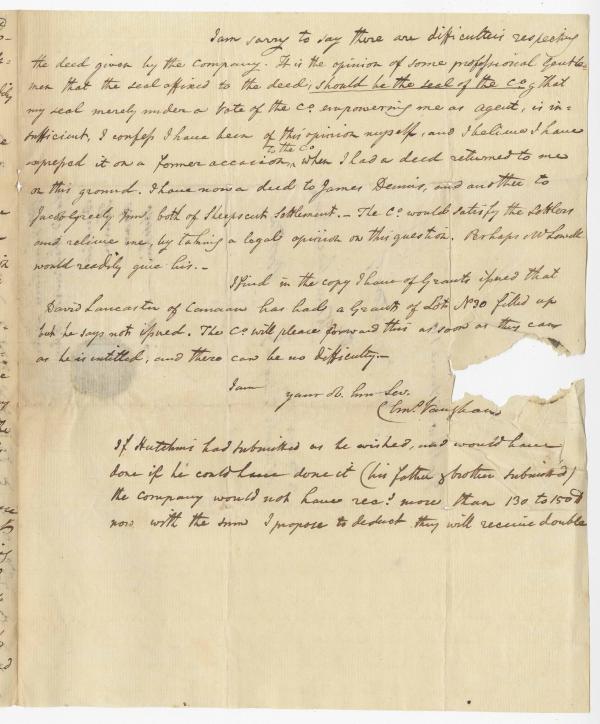 I am sorry to say there are difficulties respecting
the deed given by the Company. It is the opinion of some professional Gentle=
men that the seal affixed to the deed, should be the seal of the Co. & that
my seal merely under a Vote of the Co. empowering me as Agent, is in=
sufficient, I confess I have been of this opinion myself, and I believe I have
expressed it on a former occasion to the Co. when I had a deed returned to me
on this ground. I have now a deed to James Dennis, and another to
Jacob Greely Junr. both of Sheepscut Settlement. – The Co. would satisfy the Settlers
and relieve me, by taking a legal opinion on this question. Perhaps Mr Lowell
would readily give his. –
I find in the copy I have of Grants issued that
David Lancaster of Canaan has had a Grant of Lot No 30 filled up
but he says not issued. The Co. will please forward this as soon as they can
as he is intitled, and there can be no difficulty. –
I am
your ob. hm Ser.
Chas. Vaughan
If Hutchins had submitted as he wished, and would have
done if he could have done it (his father & brother submitted)
the Company would not have recd. more than 130 to 150 d
now with the sum I propose to deduct they will receive double